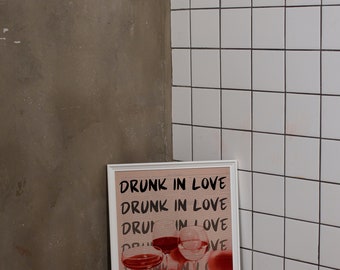 DRUNK IN LOVE
DRUNK IN LOVE
DRUNK IN LOVE
DRUNK IN LOVE